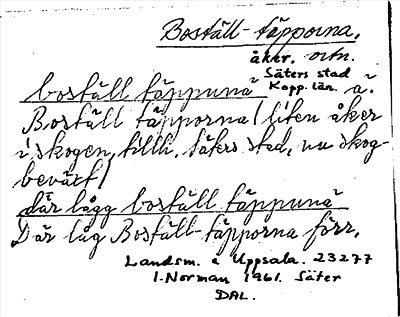 Boställ-täpporna.
åker. ortn.
Säters stad
Kopp. län.
boställ täppuna a.
Boställ täpporna (liten åker
i skogen, tillh. Säters stad, nu skog-
beväxt)
där lågg boställ täppuna
Där låg Boställ-täpporna förr.
Landsm. a Uppsala. 23277
I. Norman 1961. Säter
DAL.